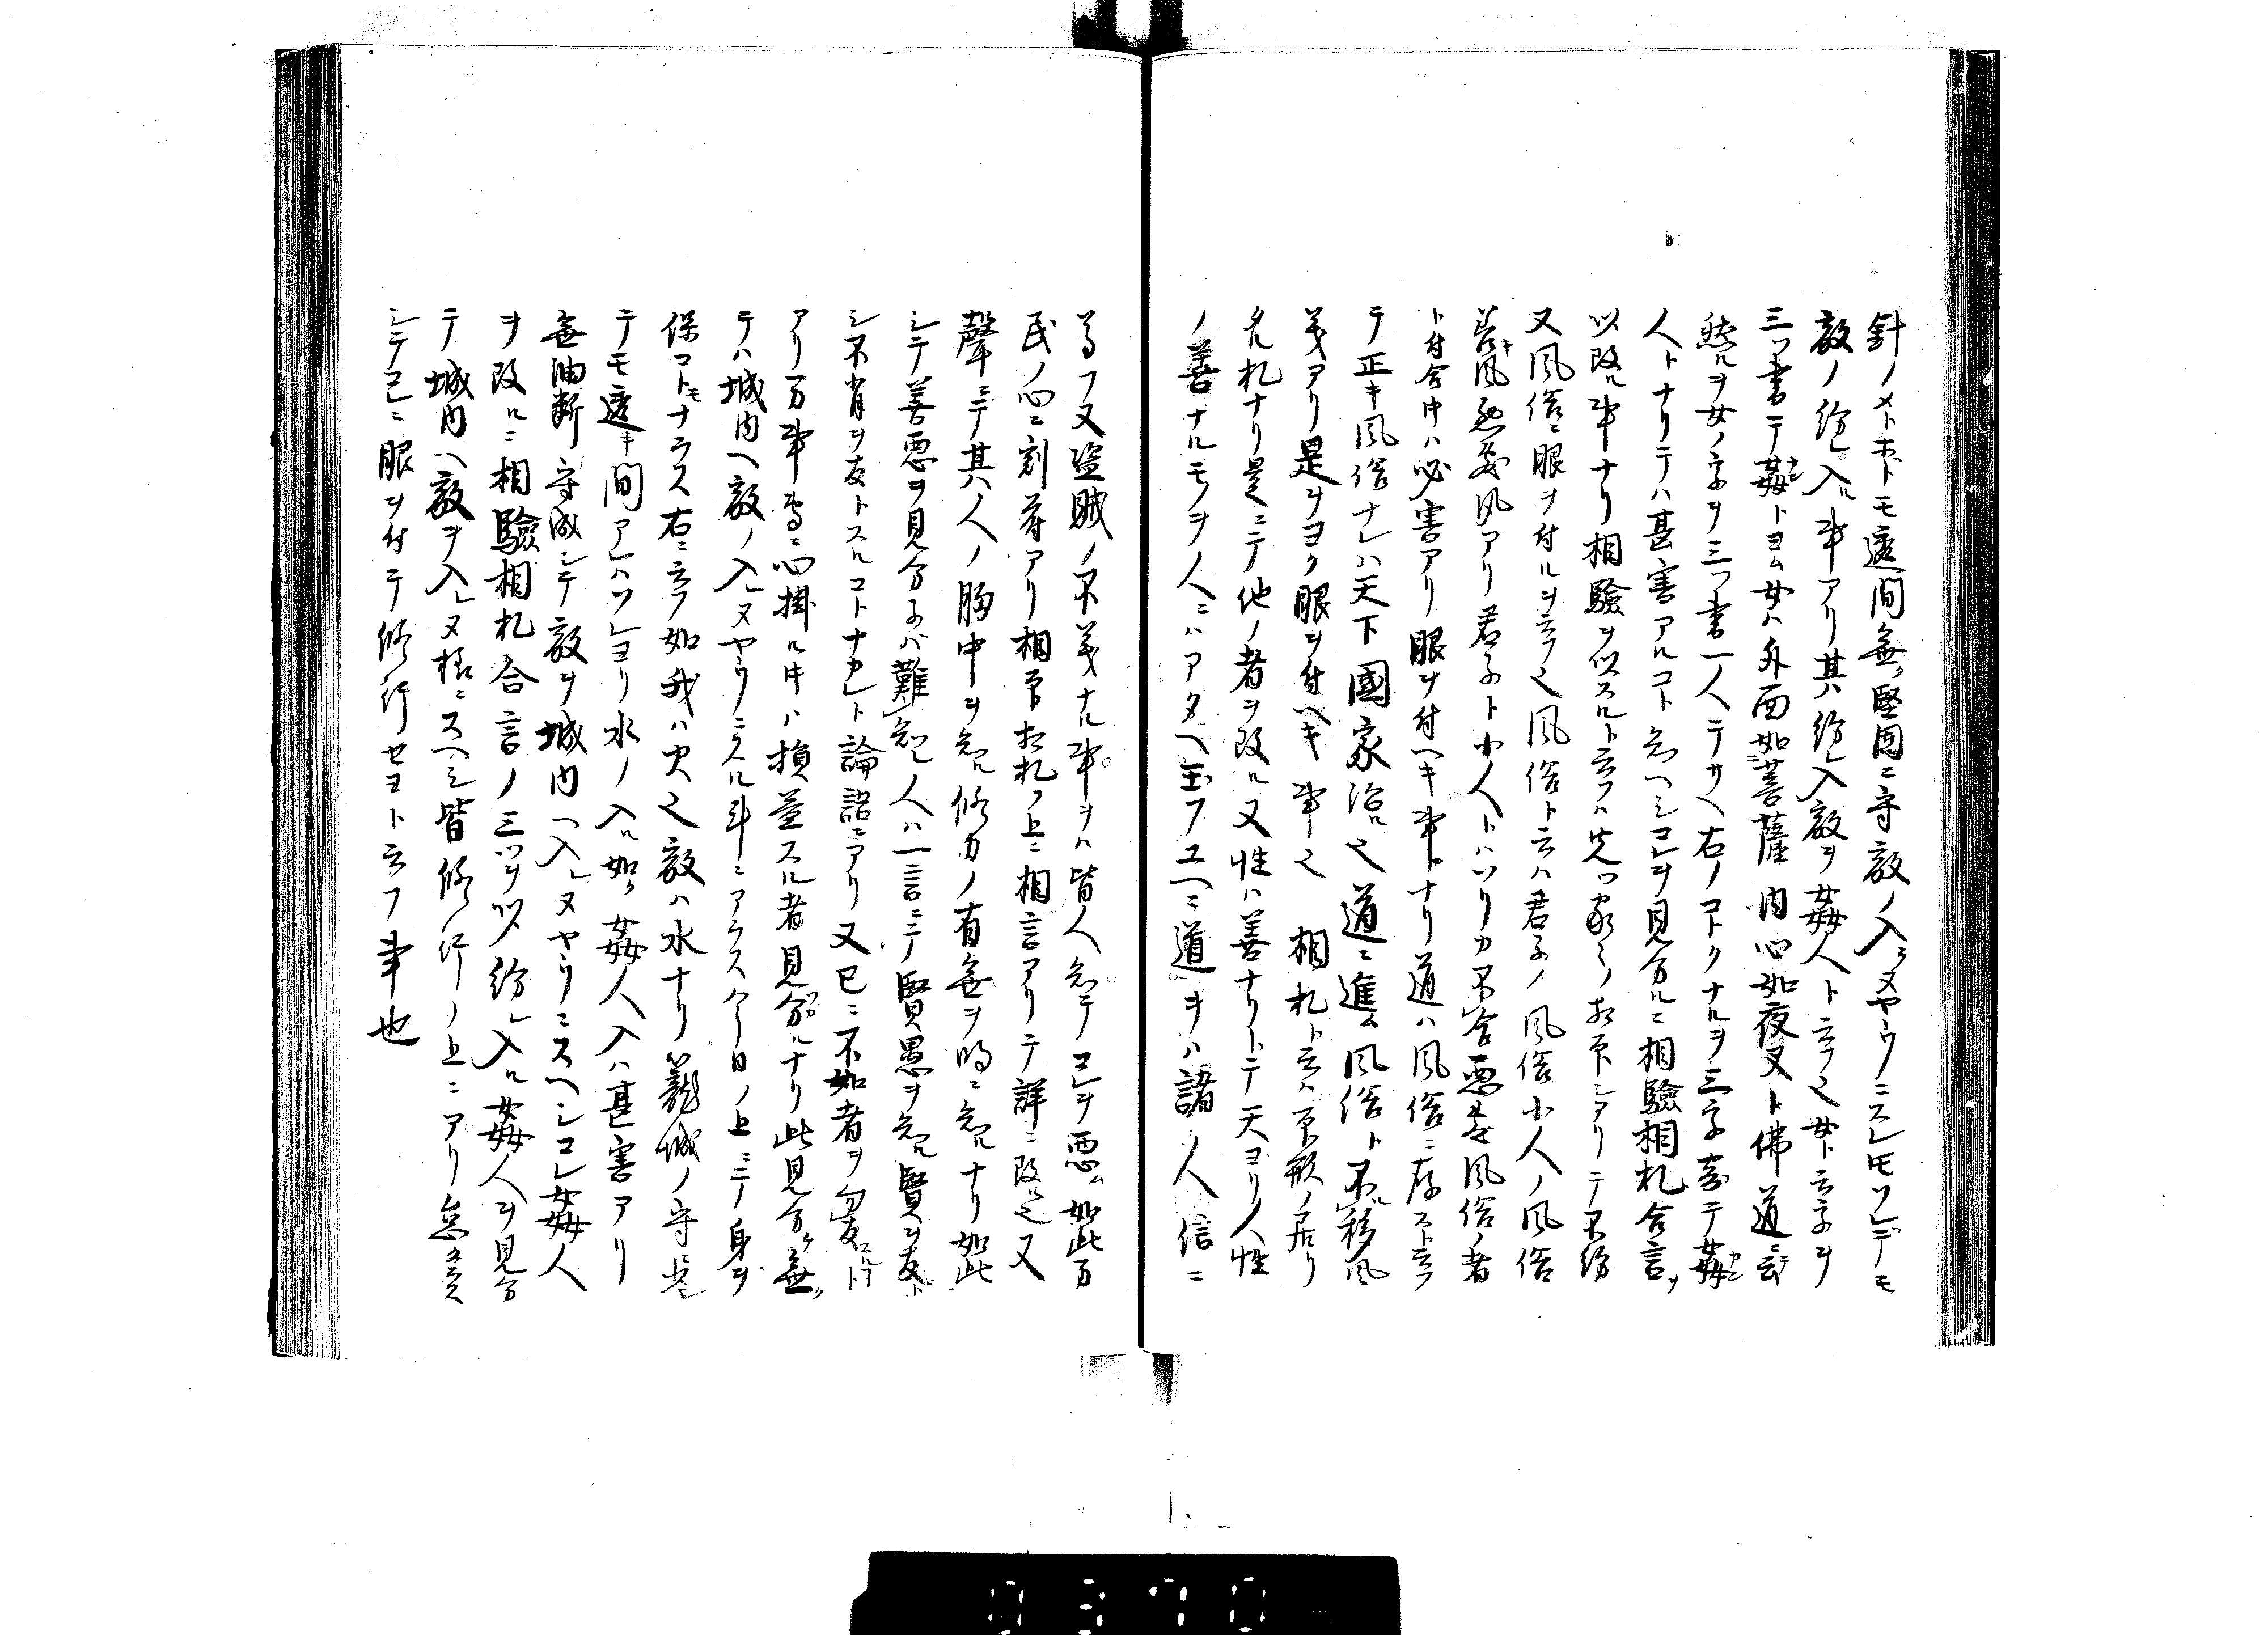 針ノメトホトモ透間無ク堅固ニ守敵ノ入ラヌヤウニスレ𪜈ソレデモ
敵ノ紛入ル事アリ其紛入敵ヲ姦人ト云フ也女ト云字ヲ
三ツ書テ姦トヨム女ハ外面如菩薩内心如夜叉ト佛道ニテ云
然ルヲ女ノ字ヲ三ツ書一人テサヘ右ノコトクナルヲ三字寄テ姦
人トナリテハ甚害アルコト知ヘシコレヲ見分ルニ相驗相札合言ヲ
以改ル事ナリ相驗ヲ以スルト云フハ先ツ家々ノ相印シアリテ不紛
又風俗ニ眼ヲ付ルヲ云フ也風俗ト云ハ君子ノ風俗小人ノ風俗
善風悪風アリ君子ト小人トハツリカ不合悪キ風俗ノ者
ト付合中ハ必害アリ眼ヲ付ヘキ事ナリ道ハ風俗ニ存スト云フ
テ正キ風俗ナレハ天下國家治ル也道ニ進ム風俗ト不移風
義アリ是ヲヨク眼ヲ付ヘキ事也 相札ト云ハ印形ノ居リ
タル札ナリ是ニテ他ノ者ヲ改ル又性ハ善ナリトテ天ヨリ人性
ノ善ナルモノヲ人ニハアタヘ玉フユヘニ道ヲハ諸ノ人信ニ
尊フ又盗賊ノ不義ナル事ヲハ皆人知テコレヲ悪ム如此万
民ノ心ニ刻符アリ相印相札ノ上ニ相言アリテ詳ニ改ル也又
聲ニテ其人ノ胸中ヲ知ル修力ノ有無ヲ明ニ知ルナリ如此
シテ善悪ヲ見分子バ難知シ人ハ一言ニテ賢愚ヲ知ル賢ヲ友ト
シ不肖ヲ友トスルコトナカレト論語ニアリ又己ニ不如者ヲ勿友スルト
アリ万事爰ニ心掛ル中ハ損益スル者見分ルナリ此見分ケ無ク
テハ城内ヘ敵ノ入レヌヤウニスル斗ニアラス今日ノ上ニテ身ヲ
保コトモナラス右ニ云フ如我ハ火也敵ハ水ナリ籠城ノ守ニ
テモ透キ間アレハソレヨリ水ノ入ル如ク姦人入ハ甚害アリ
無油断守成シテ敵ヲ城内ヘ入レヌヤウニスヘシコレ姦人
ヲ改ルニ相驗相札合言ノ三ツヲ以紛レ入ル姦人ヲ見分
テ城内ヘ敵ヲ入レヌ様ニスヘシ皆修行ノ上ニアリ怠ラス
シテ己ニ眼ヲ付テ修行セヨト云フ事也